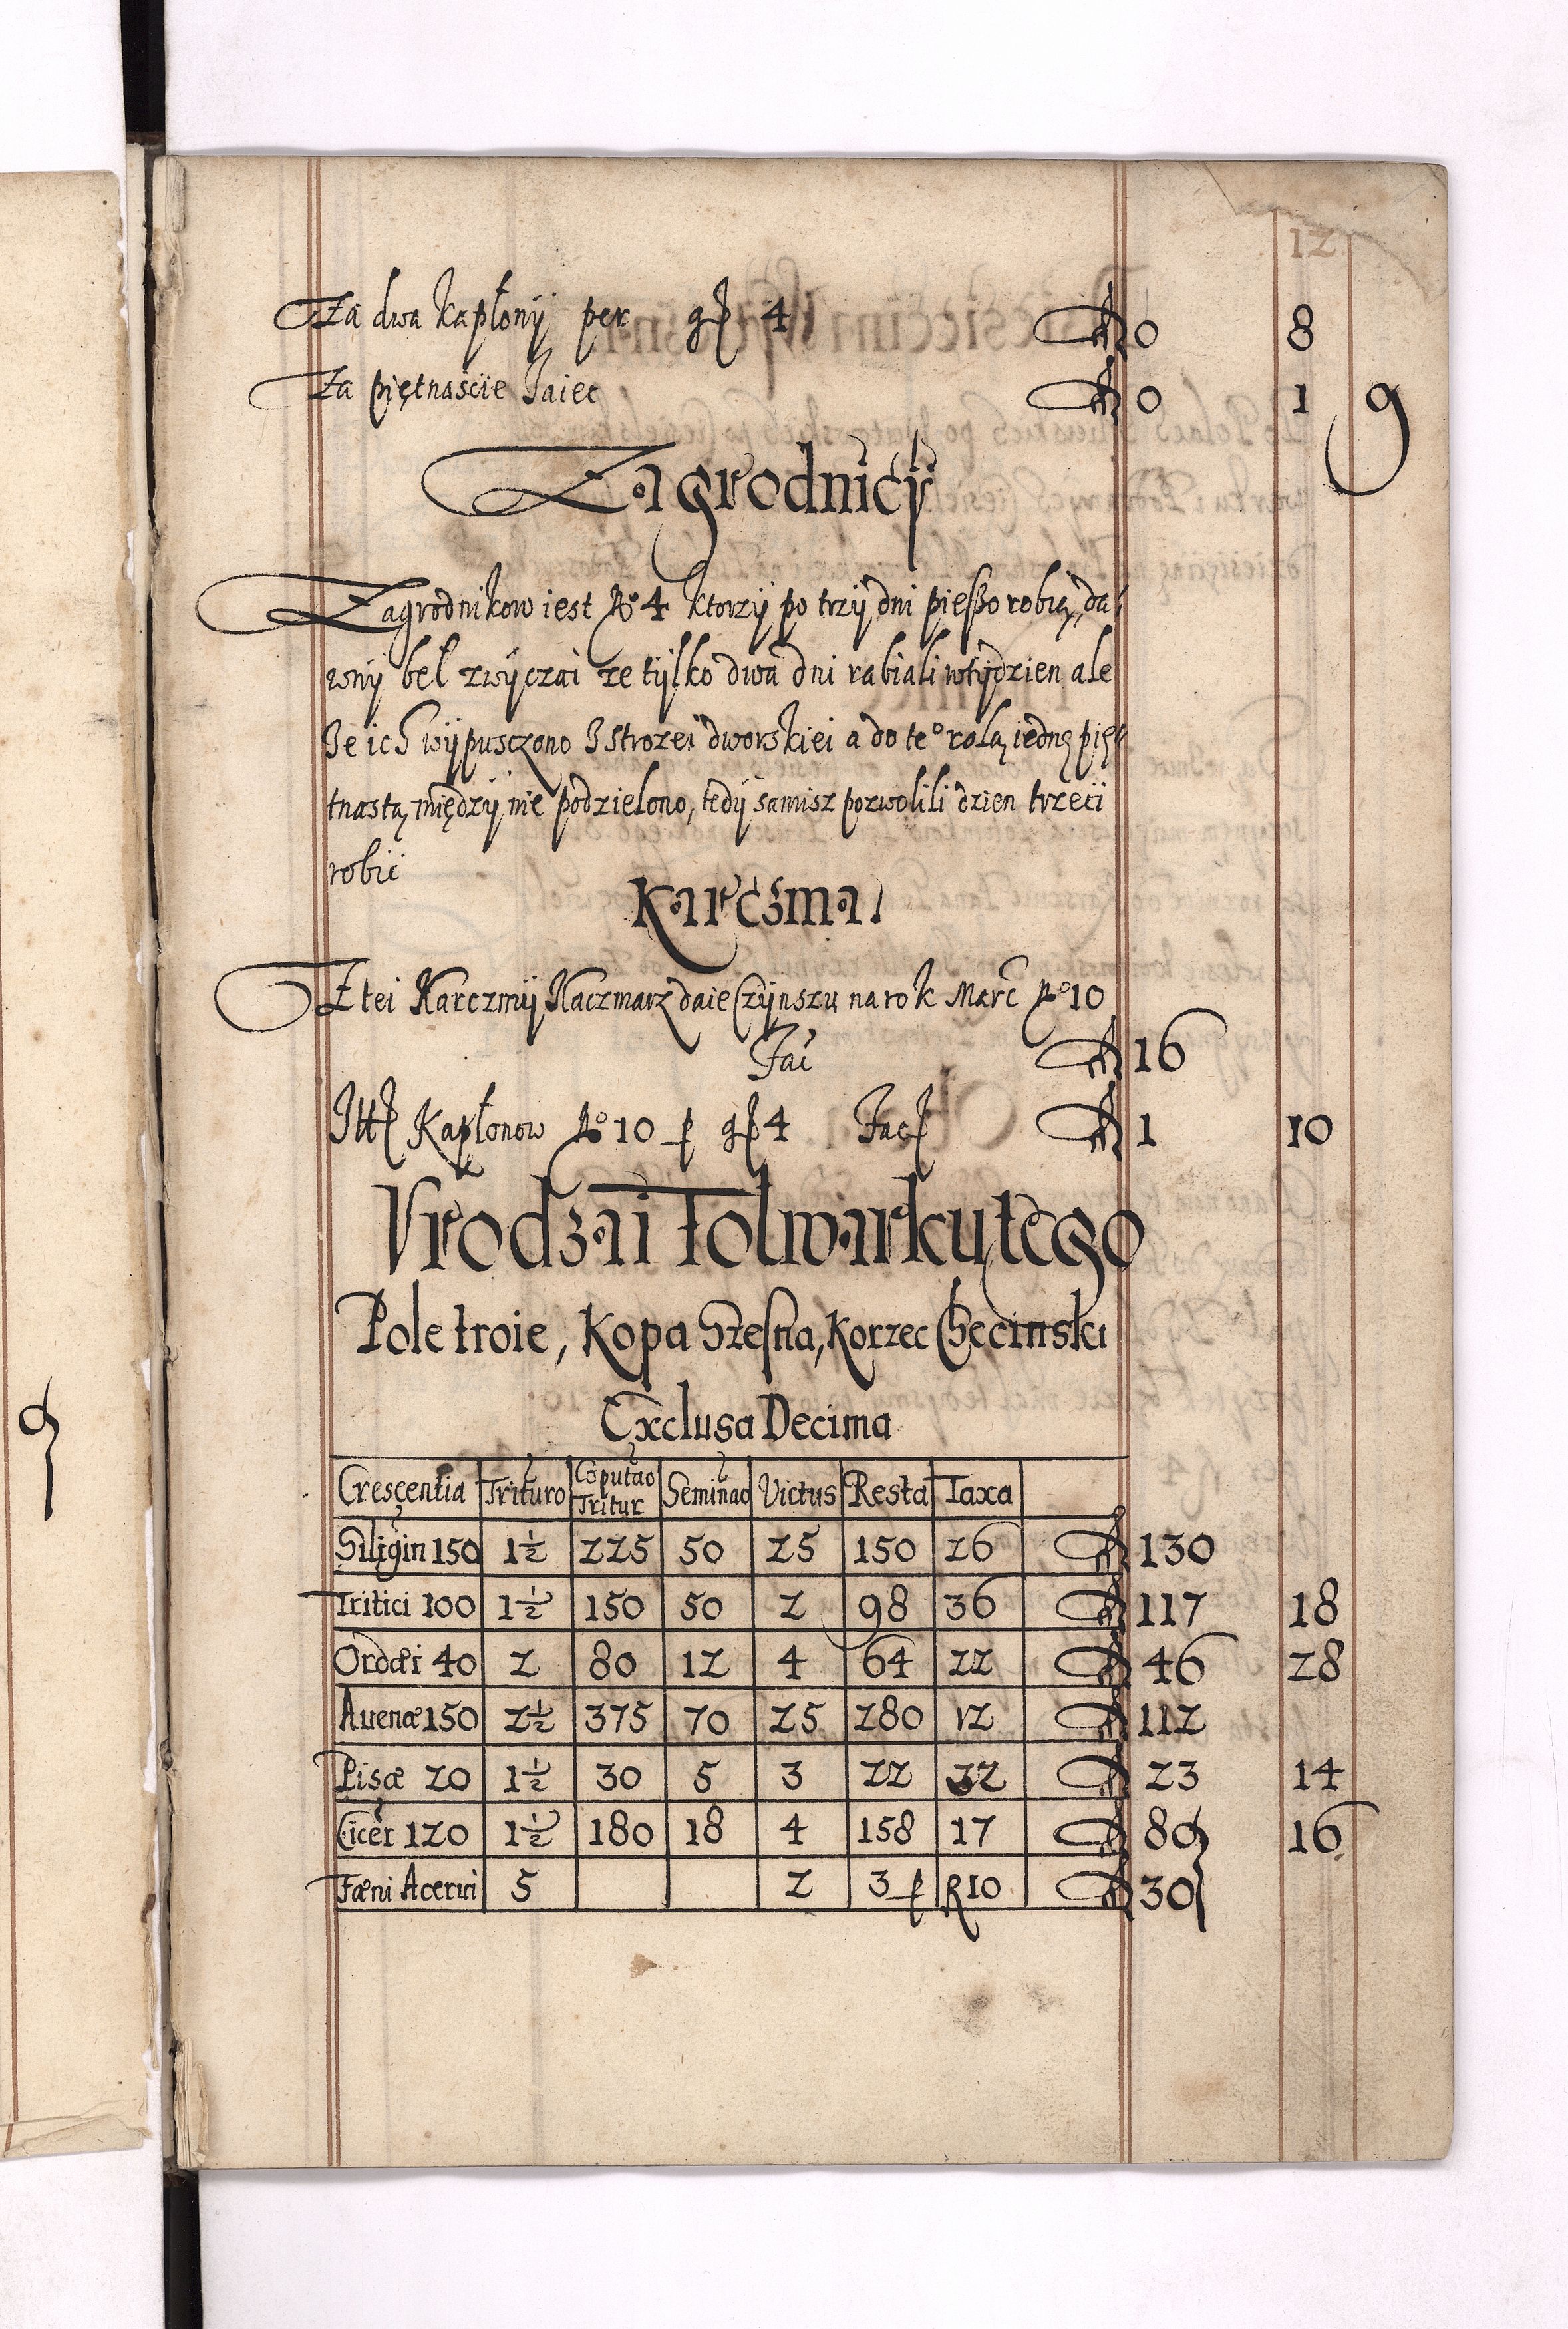 12
Za dwa kapłonÿ per gſ 4 fl 0 8
Za piętnascie Jaiec fl 0 1 9
Zagrodnicÿ
Zagrodnikow iest No 4 ktorzÿ po trzÿ dni pießo robią, da,
wnÿ beł zwÿczai ze tÿlko dwa dni rabiali w tÿdzien ale
Ze ich wÿpusczono Z strozei dworskiei a do teo rolą iedną pię,
tnastą międzÿ nie podzielono, tedÿ samisz pozwolili dzien trzeci
robić
Karczma
Z tei Karczmÿ Kaczmarz daie Czÿnszu na rok Marc No 10
Fac fl 16
Itt Kapłonow No 10 p gſ 4 Fac fl 1 10
Vrodzai Folwarku tego
Pole troie, Kopa Szesna, Korzec Checinski
Exclusa Decima
Crescentia Trituro Coputao Tritur Seminao Victus Resta Taxa
Siligin 150 1½ 225 50 25 150 26 fl 130
Tritici 100 1½ 150 50 2 98 36 fl 117 18
Ordæi 40 2 80 12 4 64 22 fl 46 28
Auenæ 150 2½ 375 70 25 280 12 fl 112
Pisæ 20 1½ 30 5 3 22 32 fl 23 14
Cicer 120 1½ 180 18 4 158 17 fl 80 16
Fæni Acerui 5 2 3 p fl 10 fl 30